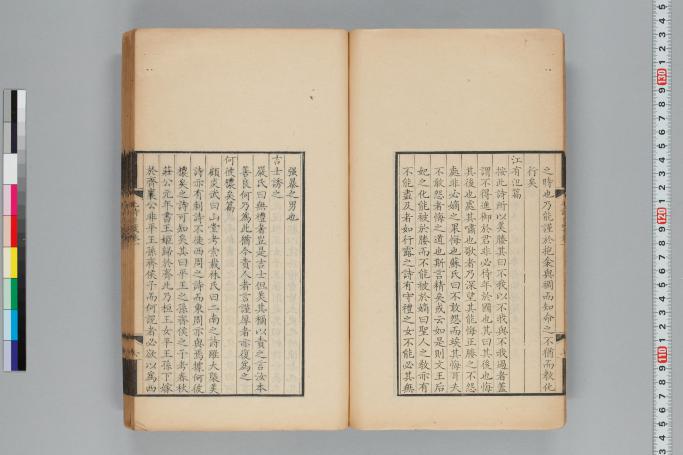 之時也乃能謹於抱衾與裯而知命之不猶而教化
行矣
江有汜篇
按此詩所以美媵其曰不我以不我與不我過者蓋
謂不得進御於君非必待年於國也其曰其後也悔
其後也處其嘯也歌者乃深望其能悔正媵之不怨
處非必嫡之果悔也蘇氏曰不敢怨而俟其悔耳夫
不敢怨者悔之道也斯言精矣或云如是則文王后
妃之化能被於媵而不能被於嫡曰聖人之教亦有
不能盡及者如行露之詩有守禮之女不能必其無
強暴之男也
吉士誘之
嚴氏曰無禮者豈是吉士但美其稱以責之言汝本
善良何乃為此猶今責人者言謹厚者亦復為之
何彼穠矣篇
顧炎武曰山堂考索載林氏曰二南之詩雖大槩美
詩亦有刺詩不徒西周之詩而東周亦與焉據何彼
穠矣之詩可知矣其曰平王之孫齊侯之子考春秋
莊公元年書王姬歸於齊此乃桓王女平王孫下嫁
於齊襄公非平王孫齊侯子而何說者必欲以為西